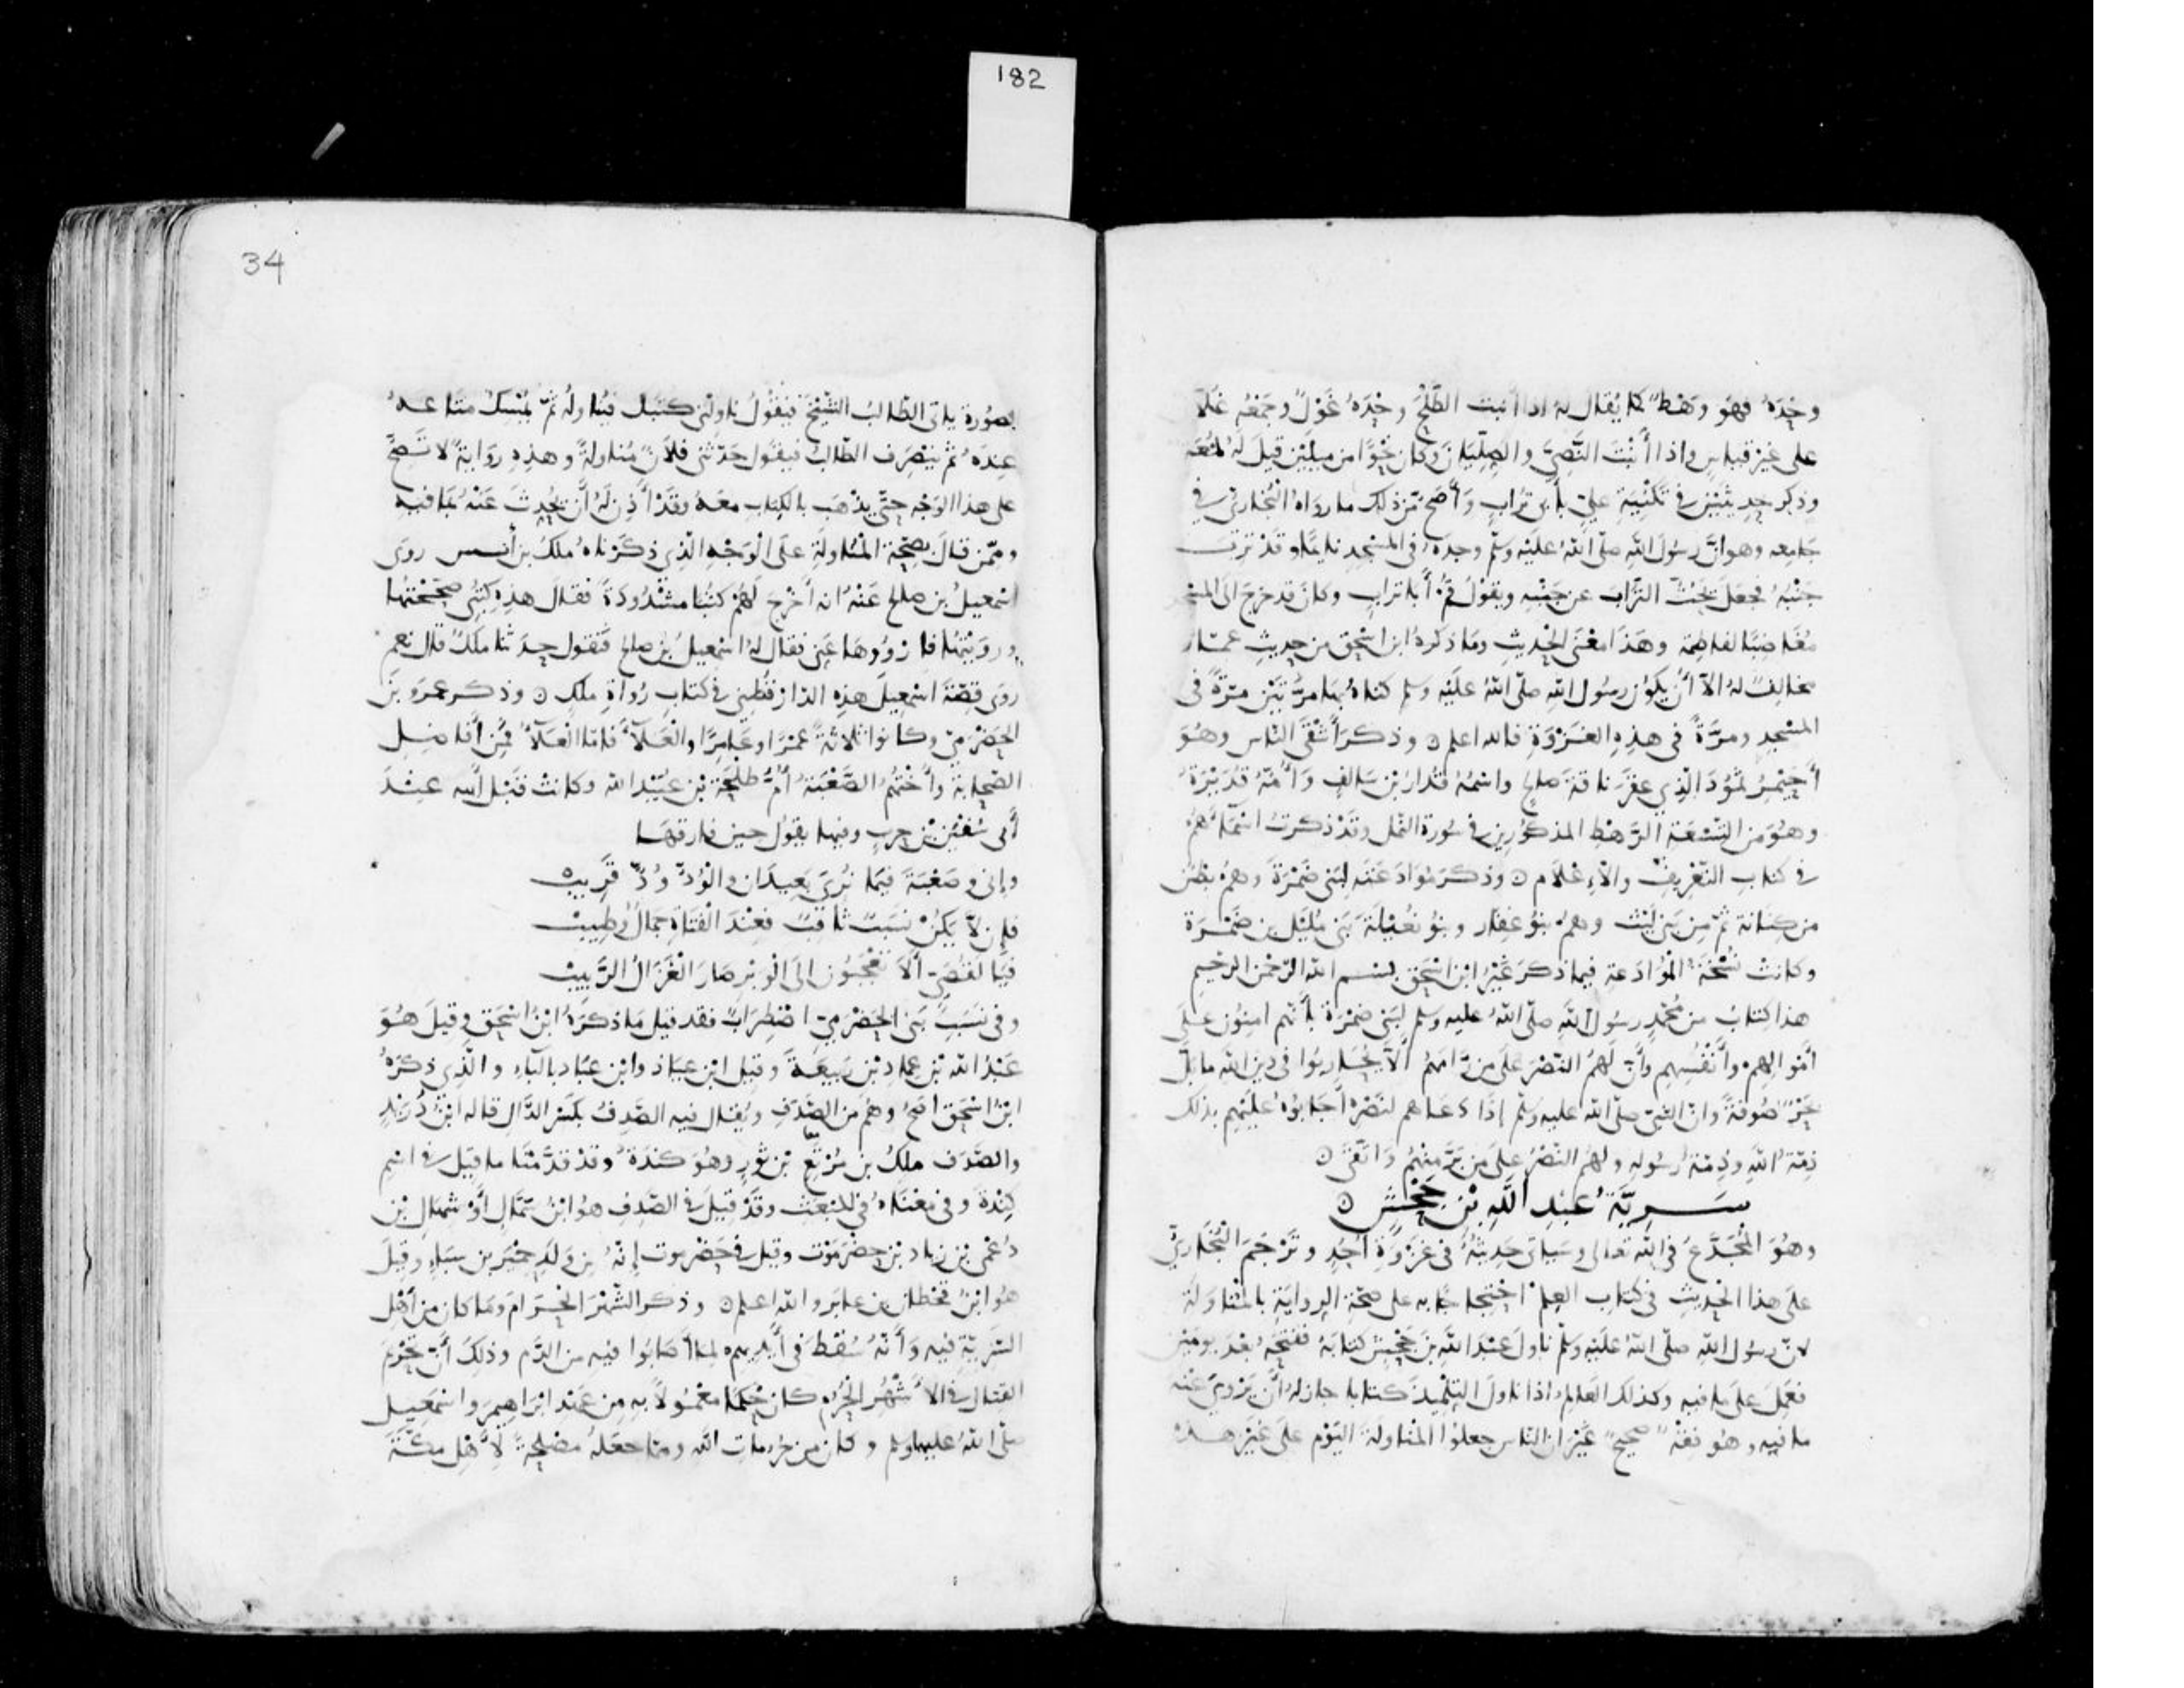 182
وحده فهو وهط كما يقال له اذا انبت الطلح وحده غول وجمعه غلان
على غير قياس واذا أنبت النصي والصليان وكان نحوا من ميلين قيل له لمعة
وذكر حديثين في تكنية علي بأبي تراب وأصح من ذلك ما رواه البخاري في
جامعه وهو ان رسول الله صلى الله عليه وسلم وجده في المسجد نائما وقد ترب
جنبه فجعل يحث التراب عن جنبه ويقول قم أبا تراب وكان قد خرج الى المسجد
مغاضبا لفاطمة وهذا معنى الحديث وما ذكره ابن اسحق من حديث عمار
مخالف له الا أن يكون رسول الله صلى الله عليه وسلم كناه بها مرتين مرة في
المسجد ومرة في هذه الغزوة فالله اعلم ٥ وذكر أشقى الناس وهو
أحيمر ثمود الذي عقر ناقة صالح واسمه قدار بن سالف وأمه قديرة
وهو من التسعة الرهط المذكورين في سورة النمل وقد ذكرت اسماءهم
في كتاب التعريف والاعلام ٥ وذكر موادعته لبني ضمرة وهم بطن
من كنانة ثم من بني ليث وهم بنو غفار وبنو نعيلة بني مليل بن ضمرة
وكانت نسخة الموادعة فيما ذكر غير ابن اسحق بسم الله الرحمن الرحيم
هذا كتاب من محمد رسول الله صلى الله عليه وسلم لبني ضمرة بأنهم امنون على
اموالهم وأنفسهم وأن لهم النصر على من رامهم ألا يحاربوا في دين الله ما بل
بحر صوفة وان النبي صلى الله عليه وسلم إذا دعاهم لنصره أجابوه عليهم بذلك
ذمة الله وذمة رسوله ولهم النصر على من بر منهم واتقى ٥
سرية عبد الله بن جحش ٥
وهو المجدع في الله تعالى وسيأتي حديثه في غزوة أحد وترجم البخاري
على هذا الحديث في كتاب العلم احتجاجا به على صحة الرواية بالمناولة
لان رسول الله صلى الله عليه وسلم ناول عبد الله بن جحش كتابه ففتحه بعد يومين
فعمل على ما فيه وكذلك العالم اذا ناول التلميذ كتابا جاز له أن يروي عنه
ما فيه وهو فقه صحيح غير ان الناس جعلوا المناولة اليوم على غير هذه
34
الصورة ياتي الطالب الشيخ فيقول ناولني كتبك فيناوله ثم يمسك متاعه
عنده ثم ينصرف الطالب فيقول حدثني فلان مناولة وهذه رواية لا تصح
على هذا الوجه حتى يذهب بالكتاب معه وقد أذن له أن يحدث عنه بما فيه
وممن قال بصحة المناولة على الوجه الذي ذكرناه ملك بن أنس روى
اسمعيل بن صالح عنه انه أخرج لهم كتبا مشدودة فقال هذه كتبي صححتها
ورويتها فارووها عني فقال له اسمعيل بن صالح فنقول حدثنا ملك قال نعم
روى قصة اسمعيل هذه الدارقطني في كتاب رواة ملك ٥ وذكر عمرو بن
الحضرمي وكانوا ثلاثة عمرا وعامرا والعلاء فاما العلاء فمن أفاضل
الصحابة وأختهم الصعبة أم طلحة بن عبيد الله وكانت قبل أبيه عند
أبي سفين بن حرب وفيها يقول حين فارقها
وإني وصعبة فيما نرى بعيدان والود ود قريب
فإن لا يكن نسب ثاقب فعند الفتاة جمال وطيب
فيا لقصي ألا تعجبون الى الوبر صار الغزال الربيب
وفي نسب بني الحضرمي اضطراب فقد قيل ما ذكره ابن اسحق وقيل هو
عبد الله بن عماد بن ربيعة وقيل ابن عياذ وابن عباد بالباء والذي ذكره
ابن اسحق اصح وهم من الصدف ويقال فيه الصدف بكسر الدال قاله ابن دريد
والصدف ملك بن مرتع بن ثور وهو كندة وقد قدمنا ما قيل في اسم
كندة وفي معناه في المبعث وقد قيل في الصدف هو ابن سمال أو شمال بن
دعمي بن زياد بن حضرموت وقيل في حضرموت إنه من ولد حمير بن سباء وقيل
هو ابن قحطان بن عابر والله اعلم ٥ وذكر الشهر الحرام وما كان من أهل
السرية فيه وأنه سقط في أيديهم لما أصابوا فيه من الدم وذلك أن تحريم
القتال في الأشهر الحرم كان حكما معمولا به من عهد ابراهيم واسمعيل
صلى الله عليهما وسلم وكان من حرمات الله ومما جعله مصلحة لأهل مكة